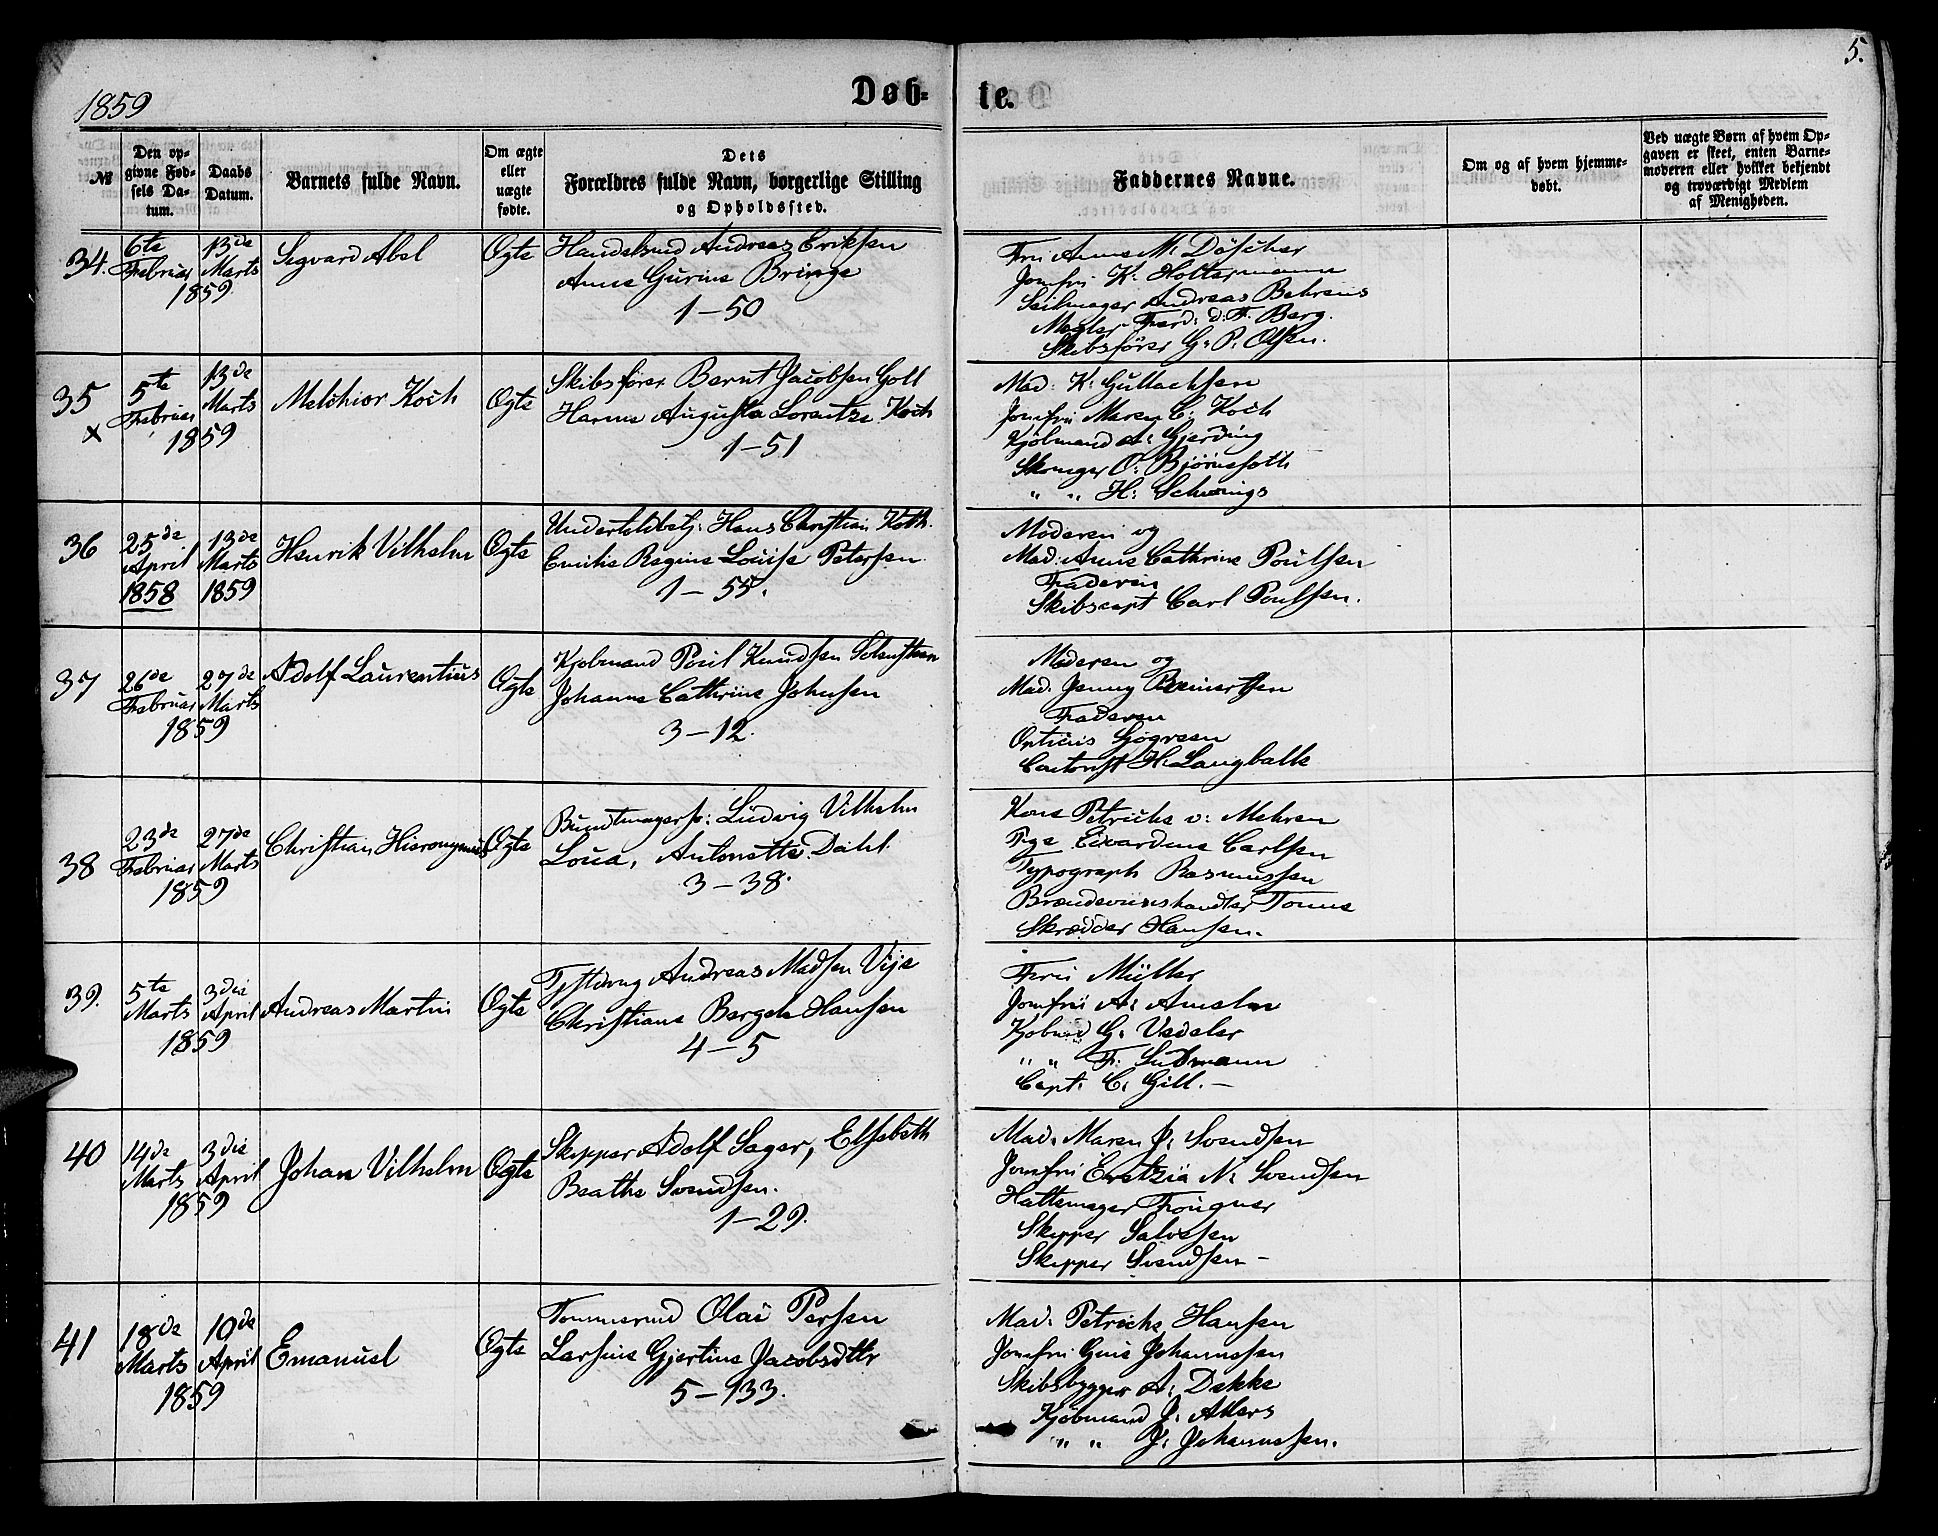 5.
1859
Døb-
te.
№
Den op-
givne Fød-
sels Da-
tum.
Daabs
Datum.
Barnets fulde Navn.
Om ægte
eller
uægte
fødte.
Dets
Forældres fulde Navn, borgerlige Stilling
og Opholdssted.
Faddernes Navne.
Om og af hvem hjemme-
døbt.
Ved uægte Børn af hvem Op-
gaven er skeet, enten Barne-
moderen eller hvilket bekjendt
og troværdigt Medlem
af Menigheden.
34.
6te
Februar
13de
Marts
1859
Segvard Abel
Ogte
Handelsmd Andreas Eriksen
Anne Gurine Bringe
1-50
Fru Anne M. Döscher
Jomfru K: Holtermann
Seilmager Andreas Behrens
Mægler Ferd: d: F. Berg.
Skibsfører G. P. Olsen.
35
x
5te
Februar
13de
Marts
1859
Melchior Koch
Ogte
Skibsfører Bernt Jacobsen Goll
Hanna Augusta Lorentze Koch
1-51
Mad: K: Gullachsen
Jomfru Maren C: Koch
Kjøbmand A: Gjerding
Skomager O: Bjørnesoth
" " H:
36
25de
April
1858
13de
Marts
1859
Henrik Vilhelm
Ogte
Hans Christian Koth.
Emilie Regine Louise Petersen.
1-55.
Moderen og
Mad: Anne Cathrine Poulsen
Faderen
Skibscapt Carl Poulsen.
37
26de
Februar
27de
Marts
1859
Adolf Laurentius
Ogte
Kjøbmand Poul Knudsen
Johanne Cathrine Johnsen
3-12.
Moderen og
Mad. Jenny Reinertsen
Faderen
Opticus Sjøgreen
H. Langballe
38
23de
Februar
27de
Marts
1859
Christian Hieronymus
Ogte
Bundtmagersv: Ludvig Vilhelm
Loua, Antonette Dahl.
3-38.
Kone Petriche v: Mehren
Pige Edvardine Carlsen
Typograph Rasmussen
Brændeviinshandler Tonne
Skrædder Hansen.
39.
5te
Marts
3die
April
1859
Andreas Martin
Ogte
Andreas Madsen Vije
Christiane Bergete Hansen
4-5
Fru Müller
Jomfru A: Ameln
Kjøbmd G: Vedeler
" " F: Sudmann
Capt: C: Gill. -
40
14de
Marts
3die
April
1859
Johan Vilhelm
Ogte
Skipper Adolf Sager, Elsebeth
Beathe Svendsen.
1-29.
Mad: Maren J: Svendsen
Jomfru N: Svendsen
Hattemager Frougner
Skipper Salvesen
Skipper Svendsen -
41
18de
Marts
10de
April
1859
Emanuel
Ogte
Tømmermd Olai Persen
Larsine Gjertine Jacobsdttr
5-133.
Mad: Petriche Hansen
Jomfru Gine Johannessen
Skibsbygger A: Dekke
Kjøbmand J: Allers
" " J: Johannessen.